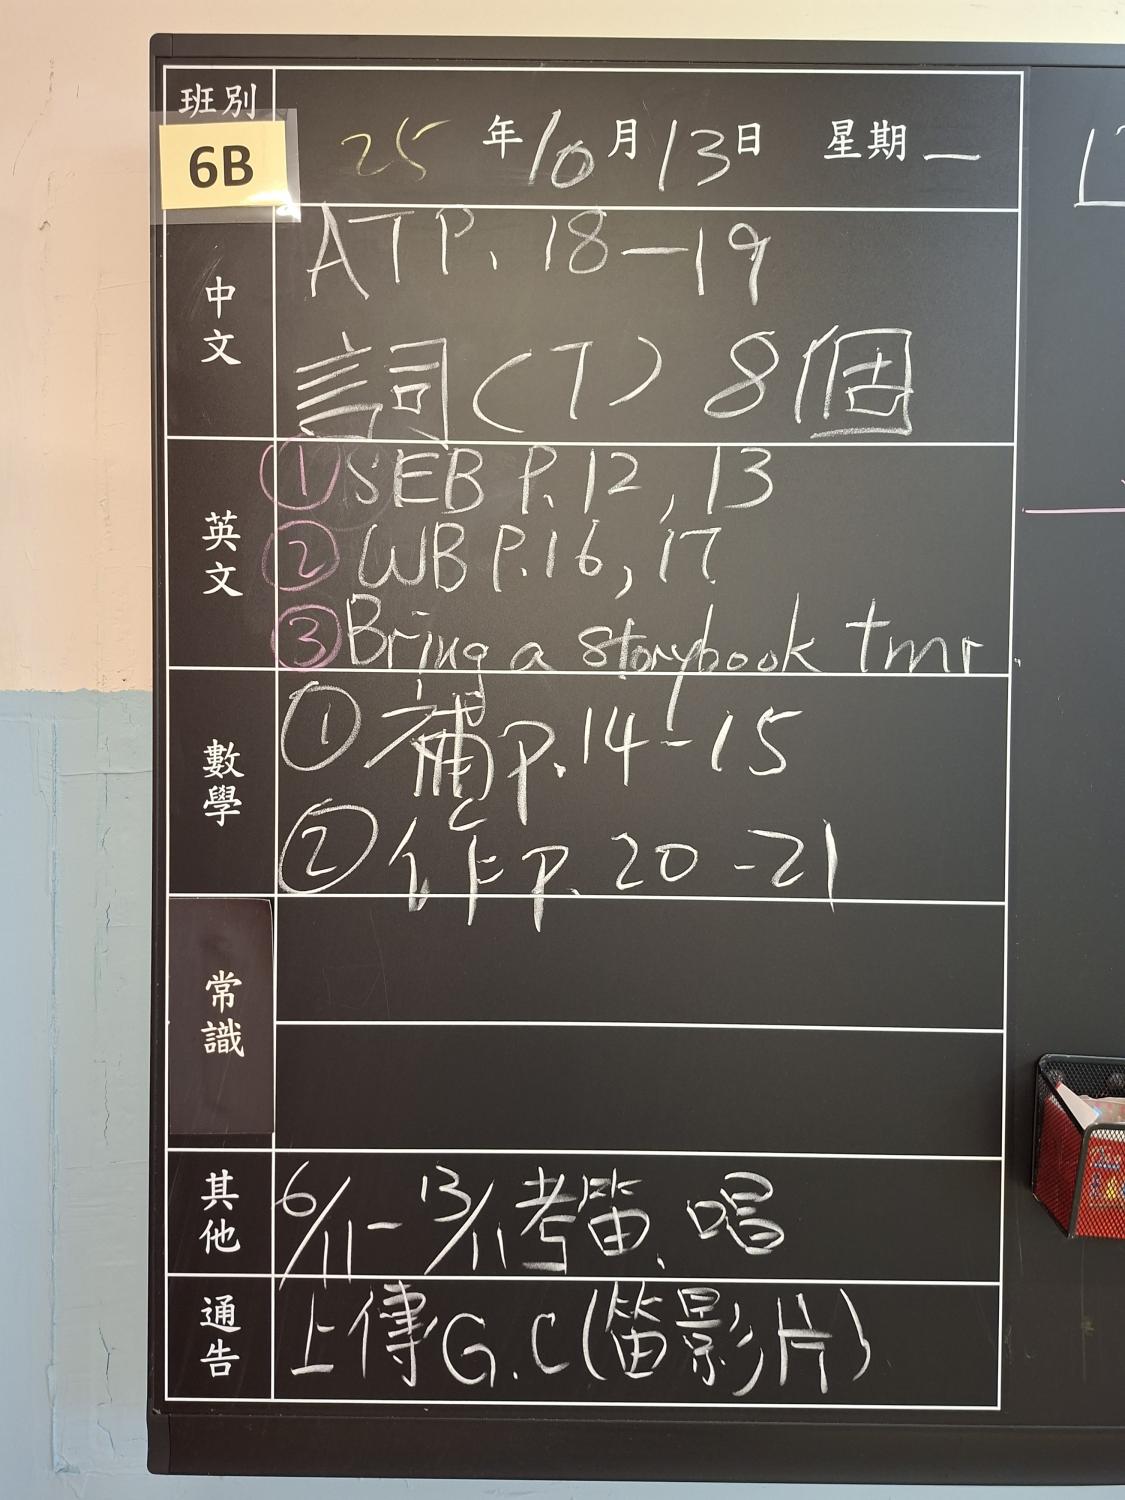 班別
6B
25年10月13日 星期一
中文
ATP. 18—19
詞(T) 8個
英文
① SEB P.12, 13
② WB P.16, 17
③ Bring a storybook tmr.
數學
① 補P.14-15
② 作P. 20-21
常識
其他
6/11-13/11考笛、唱
通告
上傳G.C(笛影片)